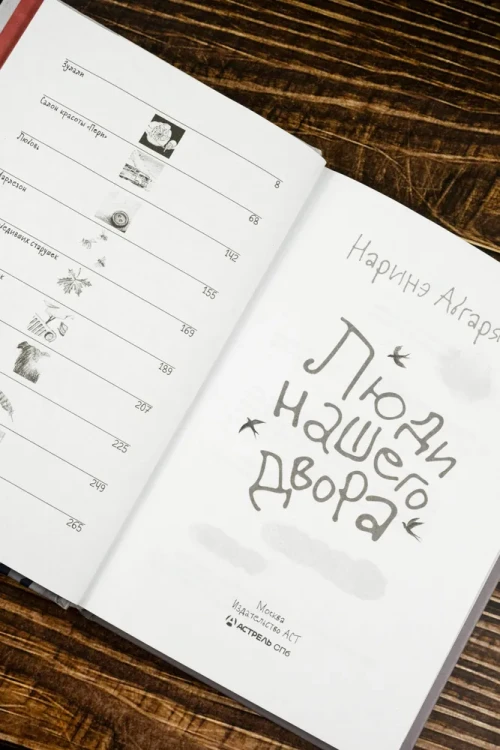 Зулали
8
Салон красоты «Пери»
68
Любовь
142
155
169
189
207
225
249
265
Наринэ Абгаря
Люди
нашего
двора
Москва
Издательство АСТ
АСТРЕЛЬ СПб